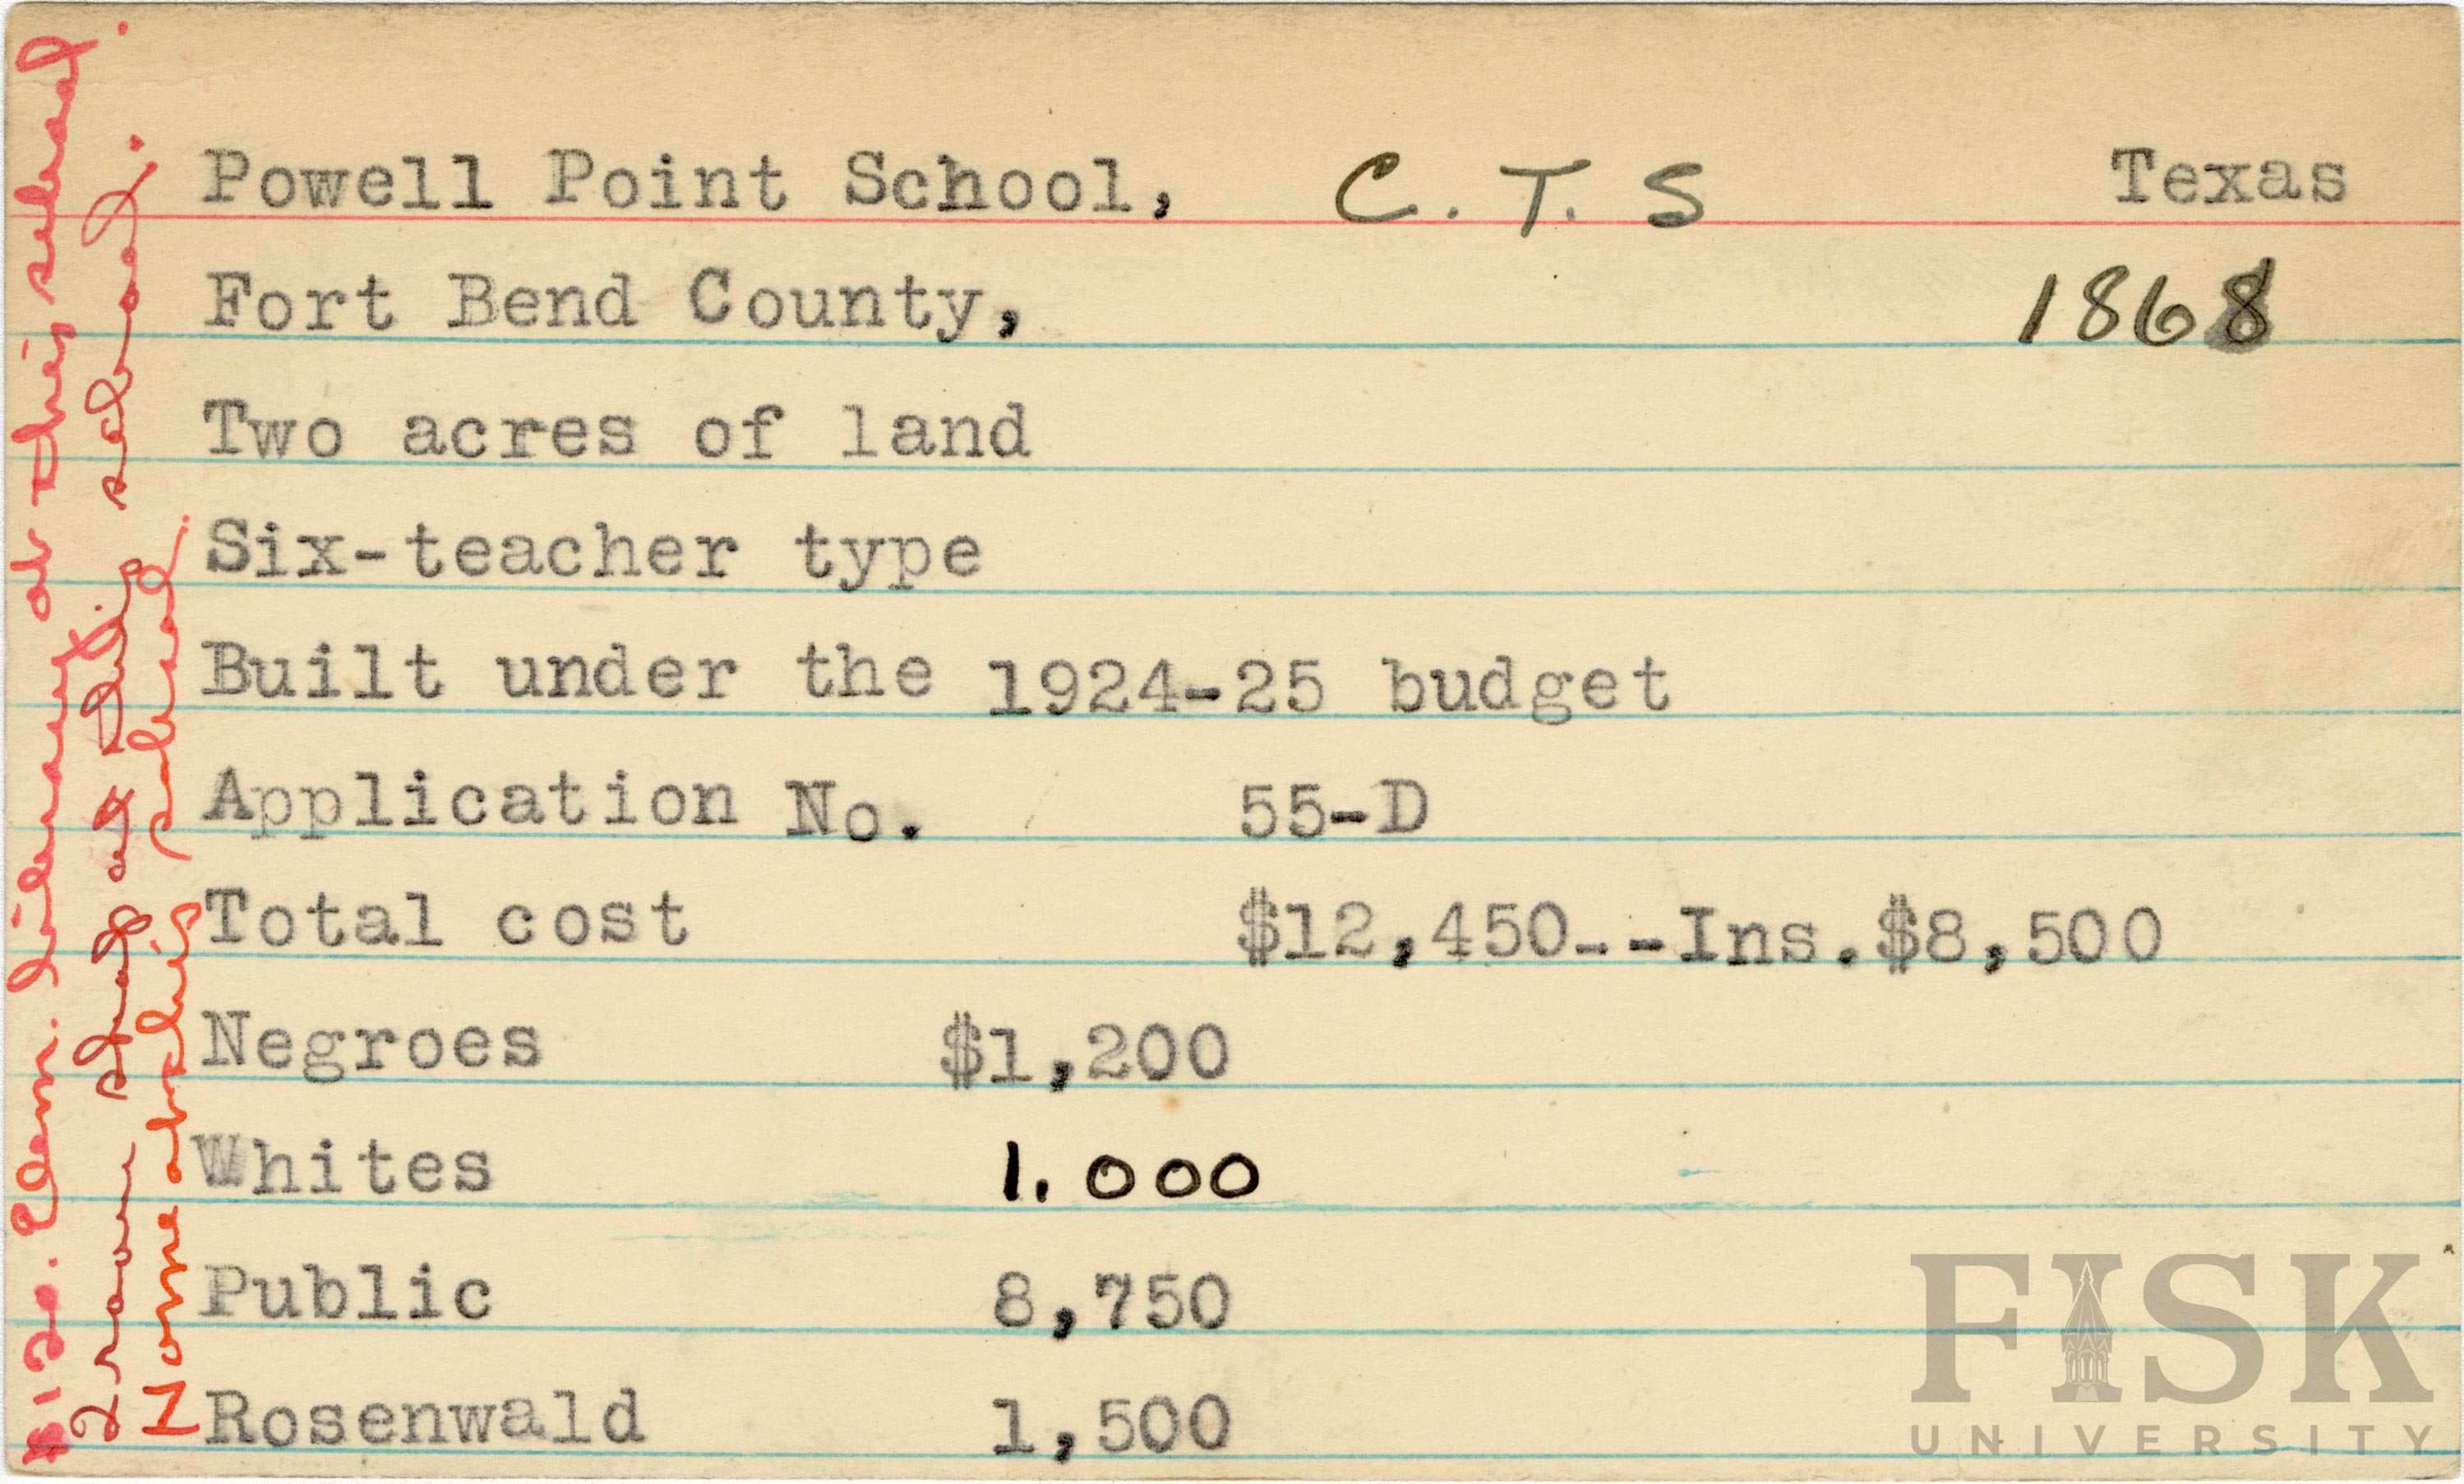 Powell Point School, C. T. S Texas
Fort Bend County, 1868
Two acres of land
Six-teacher type
Built under the 1924-25 budget
Application No. 55-D
Total cost $12,450--Ins.$8,500
Negroes $1,200
Whites 1.000
Public 8,750
Rosenwald 1,500
$120. Elem. library at this school.
2 room shop at this school.
Home at this school.
FISK
UNIVERSITY